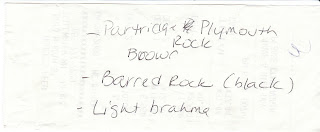 - Partridge Plymouth
Rock
Boowr
- Barred Rock (black)
- Light brahma